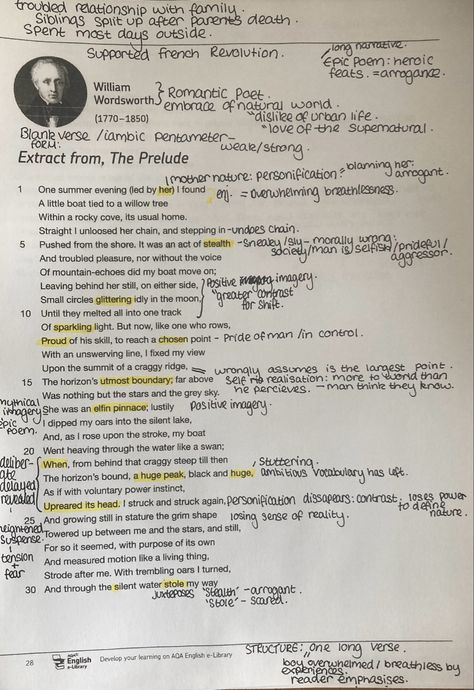 troubled relationship with family.
Siblings split up after parents death.
Spent most days outside.
Supported French Revolution.
long narrative.
Epic Poem: heroic
feats. = arrogance.
William
Wordsworth
(1770–1850)
Romantic Poet
embrace of natural world.
"dislike of urban life.
"love of the supernatural.
Blank verse / iambic pentameter -
form:
weak/strong.
Extract from, The Prelude
mother nature: personification = blaming her:
arrogant.
1 One summer evening (led by her) I found
enj. = overwhelming breathlessness.
A little boat tied to a willow tree
Within a rocky cove, its usual home.
Straight I unloosed her chain, and stepping in -undoes chain.
5 Pushed from the shore. It was an act of stealth -Sneaky/sly - morally wrong:
society/man is selfish/prideful/
aggressor.
And troubled pleasure, nor without the voice
Of mountain-echoes did my boat move on;
Leaving behind her still, on either side,
Positive imagery.
Small circles glittering idly in the moon,
"greater contrast
for shift.
10 Until they melted all into one track
Of sparkling light. But now, like one who rows,
Proud of his skill, to reach a chosen point - Pride of man / in control.
With an unswerving line, I fixed my view
Upon the summit of a craggy ridge,
= wrongly assumes is the largest point.
15 The horizon's utmost boundary; far above
self realisation: more to world than
he percieves. - man think they know.
Was nothing but the stars and the grey sky.
mythical
imagery
epic
poem.
She was an elfin pinnace; lustily Positive imagery.
I dipped my oars into the silent lake,
And, as I rose upon the stroke, my boat
20 Went heaving through the water like a swan;
deliber-
ate
delayed
revealed
When, from behind that craggy steep till then
Stuttering.
The horizon's bound, a huge peak, black and huge, ambitious vocabulary has left.
As if with voluntary power instinct,
Upreared its head. I struck and struck again, personification dissapears: contrast: loses power
to define
nature.
25 And growing still in stature the grim shape losing sense of reality.
heightened
suspense.
tension
+
fear
Towered up between me and the stars, and still,
For so it seemed, with purpose of its own
And measured motion like a living thing,
Strode after me. With trembling oars I turned,
30 And through the silent water stole my way
juxtaposes 'stealth' - arrogant.
'stole' - scared.
STRUCTURE: one long verse.
boy overwhelmed / breathless by
experiences.
reader emphasises.
28
AQA
English
e-Library
Develop your learning on AQA English e-Library